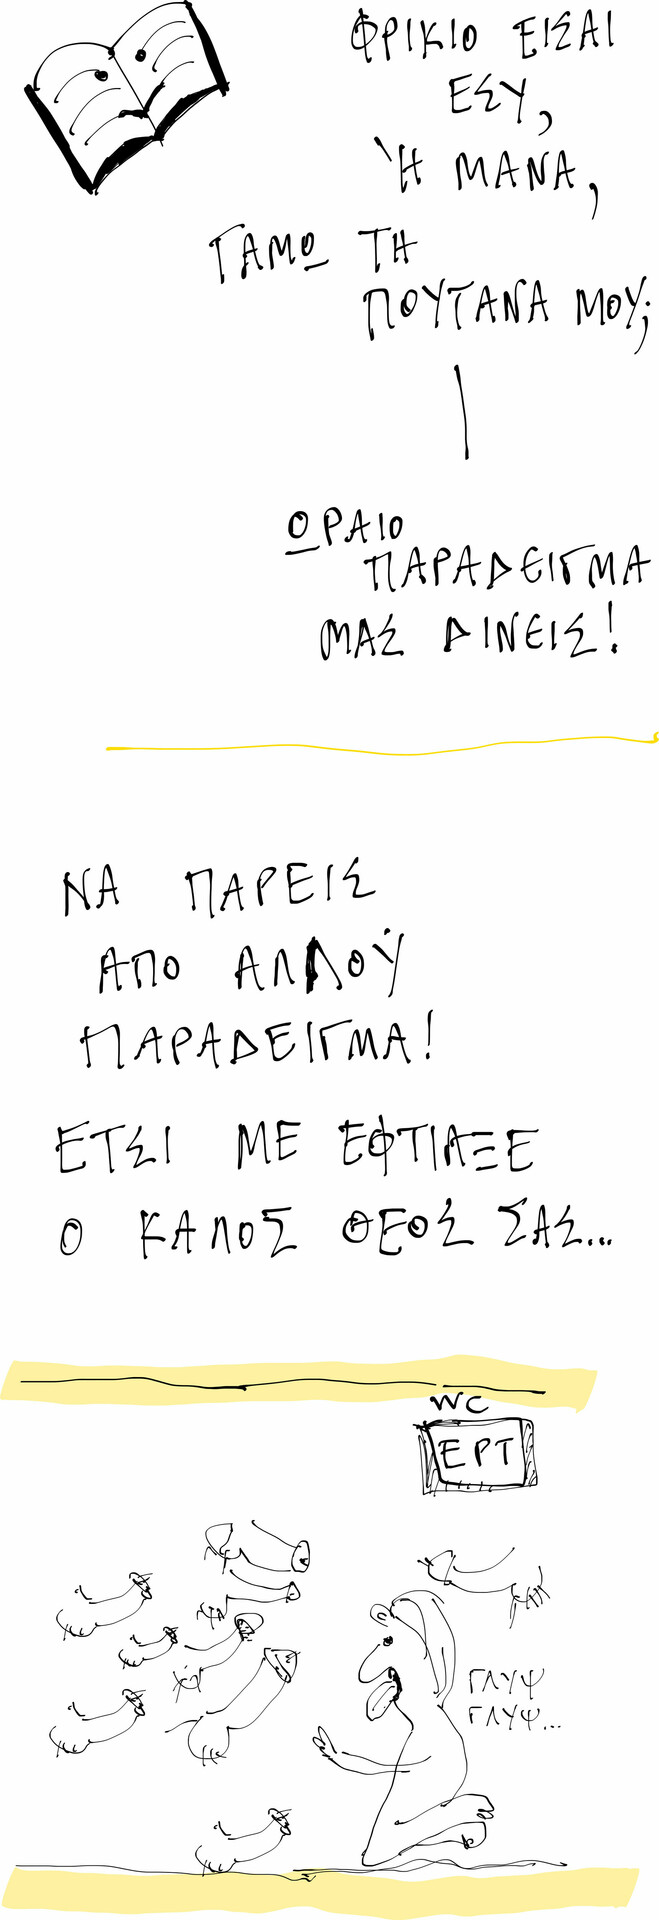 ΦΡΙΚΙΟ ΕΙΣΑΙ
ΕΣΥ,
Ή ΜΑΝΑ,
ΓΑΜΩ ΤΗ
ΠΟΥΤΑΝΑ ΜΟΥ;
ΩΡΑΙΟ
ΠΑΡΑΔΕΙΓΜΑ
ΜΑΣ ΔΙΝΕΙΣ!
ΝΑ ΠΑΡΕΙΣ
ΑΠΟ ΑΛΛΟΎ
ΠΑΡΑΔΕΙΓΜΑ!
ΕΤΣΙ ΜΕ ΕΦΤΙΑΞΕ
Ο ΚΑΛΟΣ ΘΕΟΣ ΣΑΣ...
WC
ΕΡΤ
ΓΛΥΨ
ΓΛΥΨ...